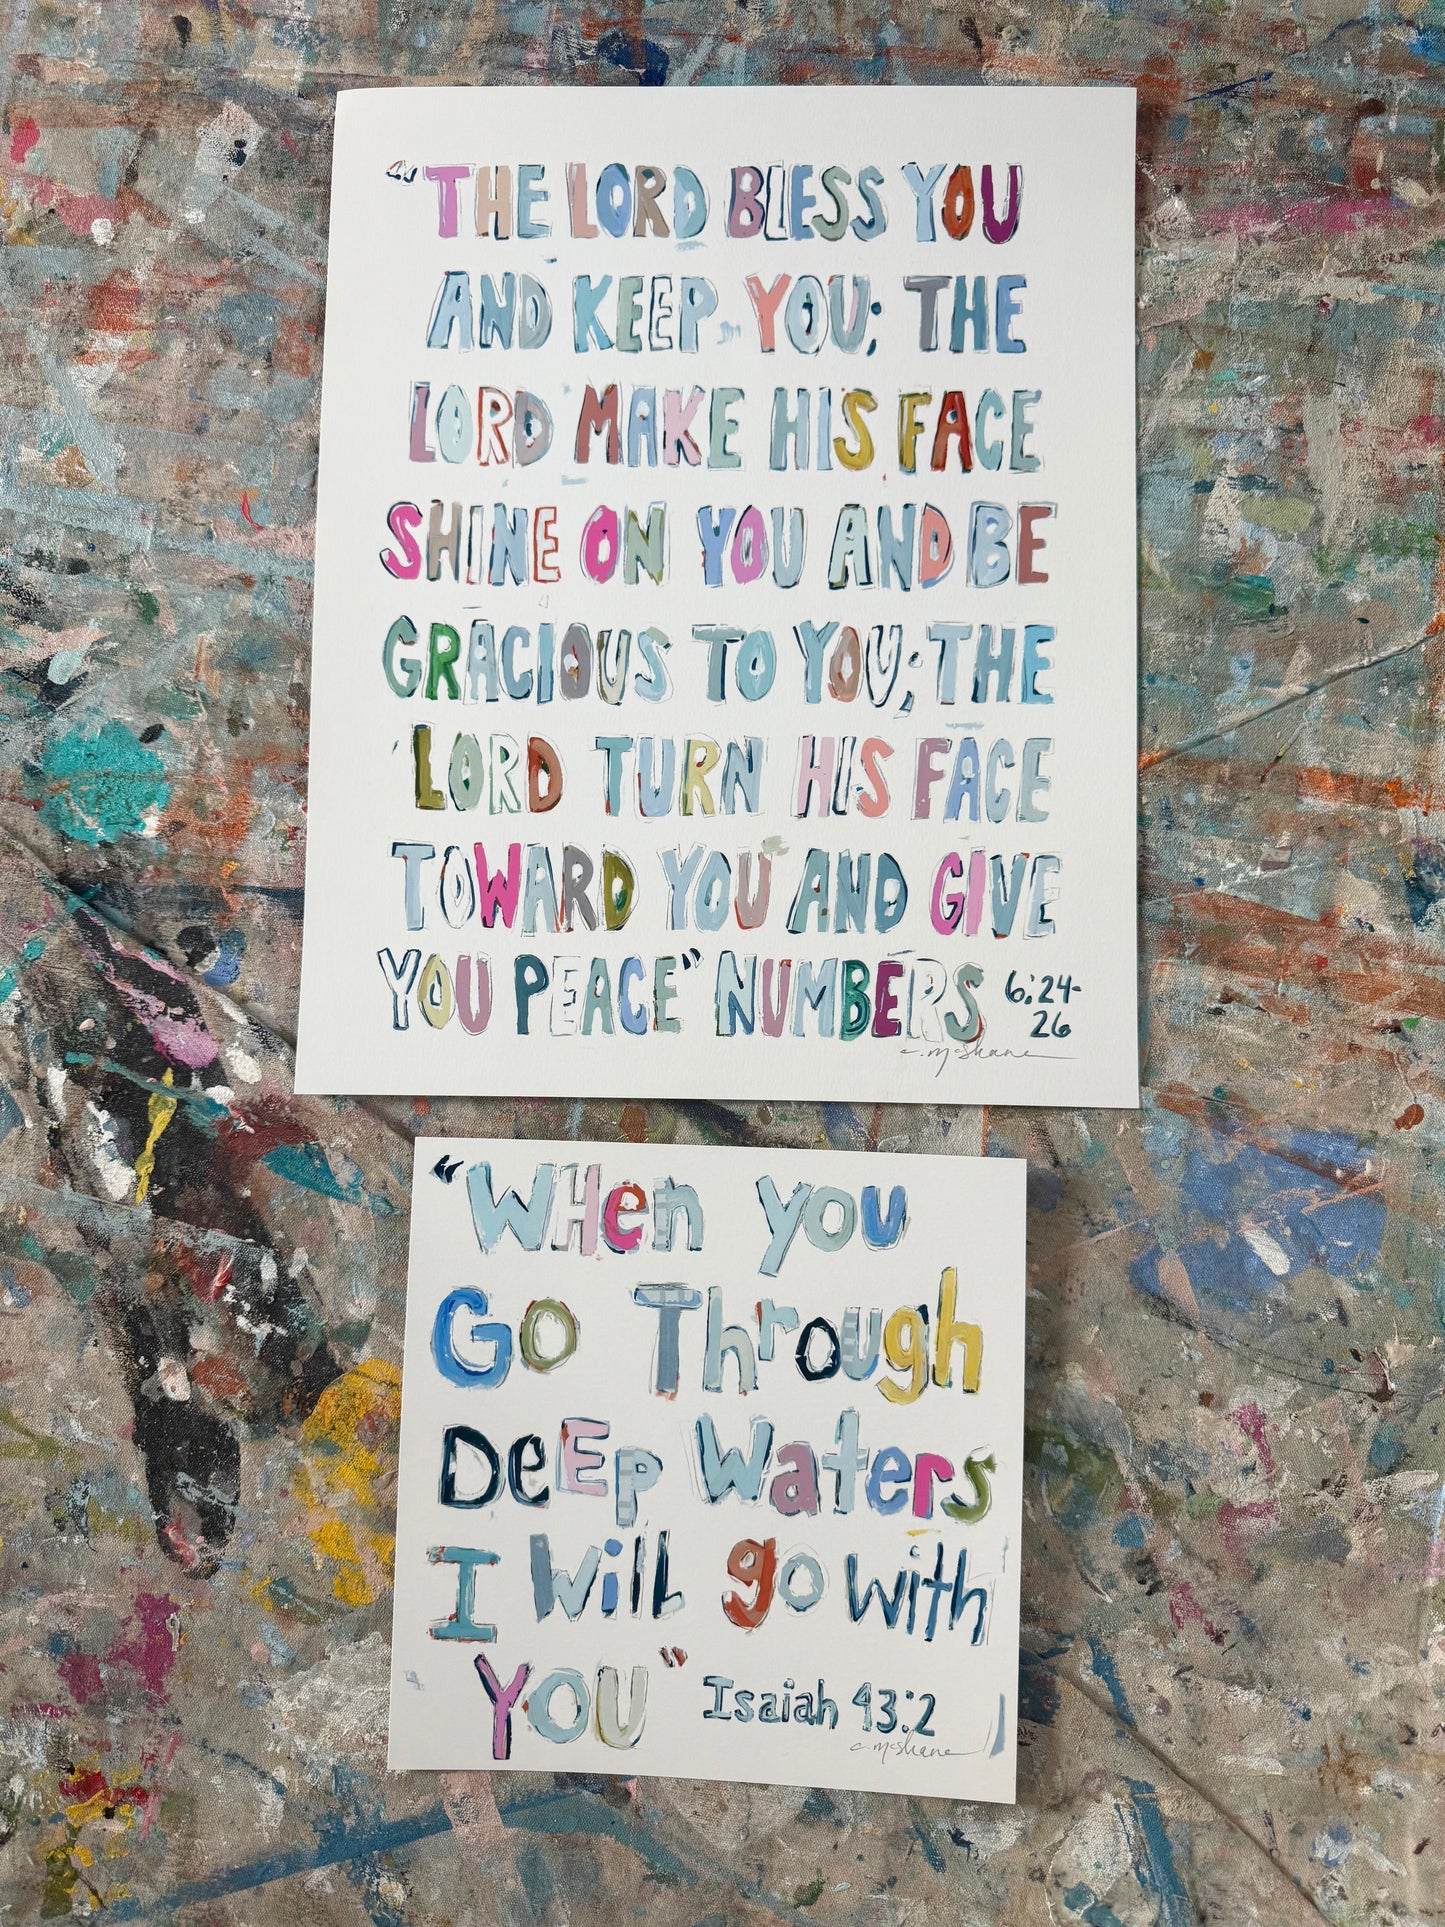 "THE LORD BLESS YOU
AND KEEP YOU; THE
LORD MAKE HIS FACE
SHINE ON YOU AND BE
GRACIOUS TO YOU; THE
LORD TURN HIS FACE
TOWARD YOU AND GIVE
YOU PEACE" NUMBERS 6:24-
26
c. McShane
"WHen you
Go Through
DeEp Waters
I Will go with
YOU" Isaiah 43:2
c. McShane